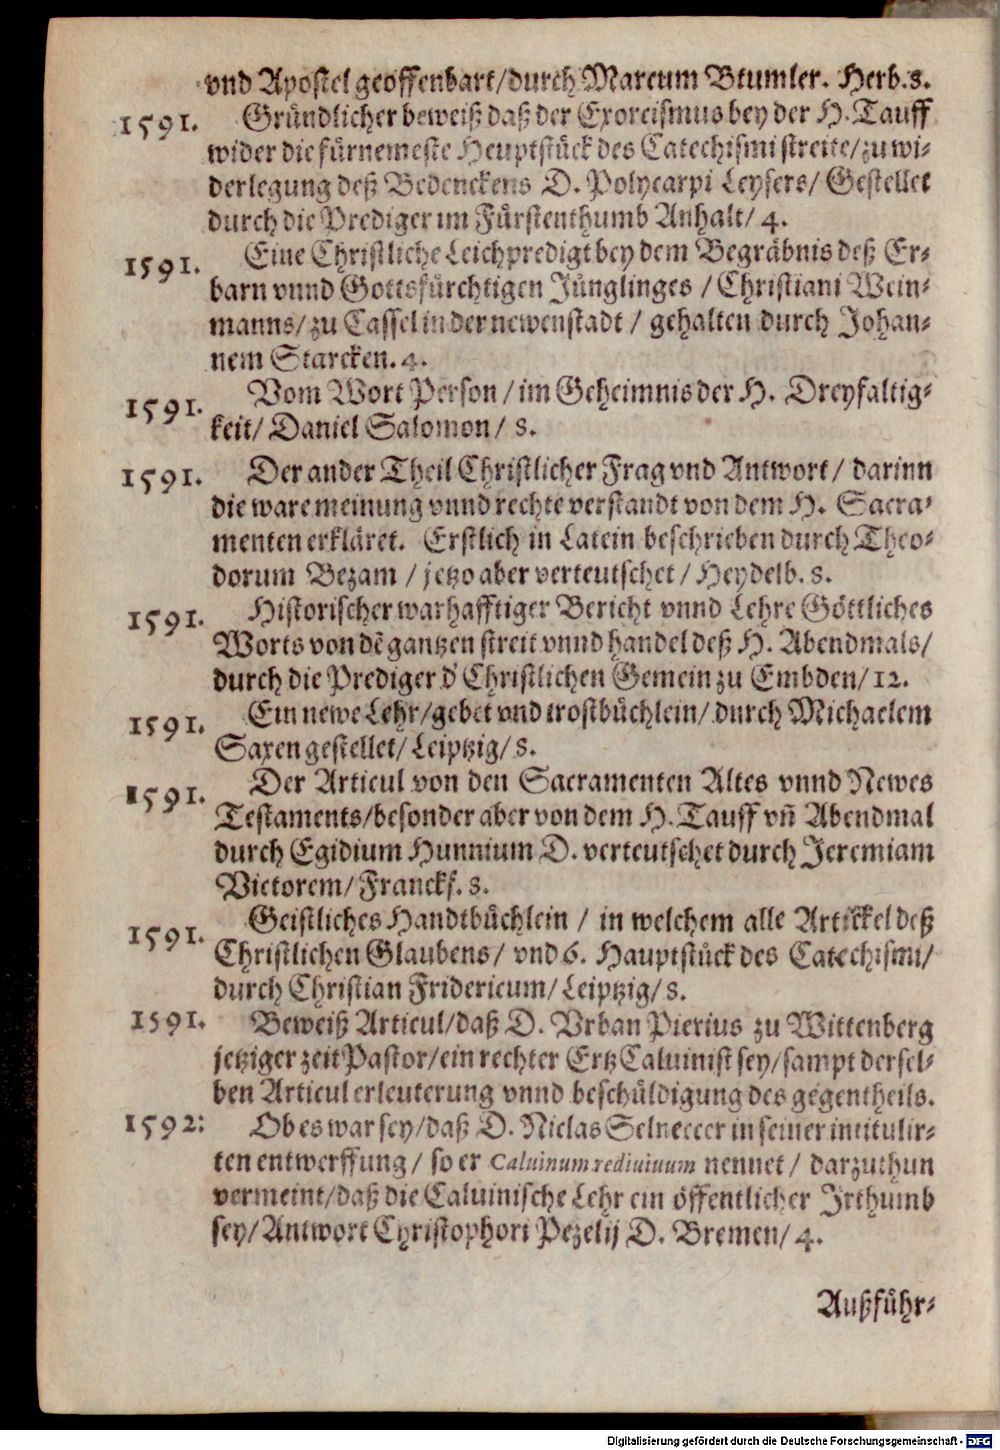 vnd Apostel geoffenbart/durch Marcum Beumler. Herb.8.
1591. Gründlicher beweiß daß der Exorcismus bey der H. Tauff
wider die fürnemeste Heuptstück des Catechismi streite/zu wi-
derlegung deß Bedenckens D. Polycarpi Leysers/ Gestellet
durch die Prediger im Fürstenthumb Anhalt/ 4.
1591. Eine Christliche Leichpredigt bey dem Begräbnis deß Er-
barn vnnd Gottsfürchtigen Jünglinges / Christiani Wein-
manns/ zu Cassel in der newenstadt / gehalten durch Johan-
nem Starcken. 4.
1591. Vom Wort Person / im Geheimnis der H. Dreyfaltig-
keit/ Daniel Salomon/ 8.
1591. Der ander Theil Christlicher Frag vnd Antwort/ darinn
die ware meinung vnnd rechte verstandt von dem H. Sacra-
menten erkläret. Erstlich in Latein beschrieben durch Theo-
dorum Bezam / jetzo aber verteutschet/ Heydelb. 8.
1591. Historischer warhafftiger Bericht vnnd Lehre Göttliches
Worts von dē gantzen streit vnnd handel deß H. Abendmals/
durch die Prediger d' Christlichen Gemein zu Embden/ 12.
1591. Ein newe Lehr/gebet vnd trostbüchlein/ durch Michaelem
Saxen gestellet/ Leiptzig/ 8.
1591. Der Articul von den Sacramenten Altes vnnd Newes
Testaments/besonder aber von dem H. Tauff vñ Abendmal
durch Egidium Hunnium D. verteutschet durch Jeremiam
Victorem/ Franckf. 8.
1591. Geistliches Handtbüchlein / in welchem alle Artickel deß
Christlichen Glaubens/ vnd 6. Hauptstück des Catechismi/
durch Christian Fridericum/ Leiptzig/ 8.
1591. Beweiß Articul/daß D. Vrban Pierius zu Wittenberg
jetziger zeit Pastor/ein rechter Ertz Caluinist sey/sampt dersel-
ben Articul erleuterung vnnd beschüldigung des gegentheils.
1592: Ob es war sey/daß D. Niclas Selneccer in seiner intitulir-
ten entwerffung/ so er Caluinum rediuiuum nennet/ darzuthun
vermeint/daß die Caluinische Lehr ein öffentlicher Jrthumb
sey/Antwort Christophori Pezelij D. Bremen/ 4.
Außführ-
Digitalisierung gefördert durch die Deutsche Forschungsgemeinschaft - DFG